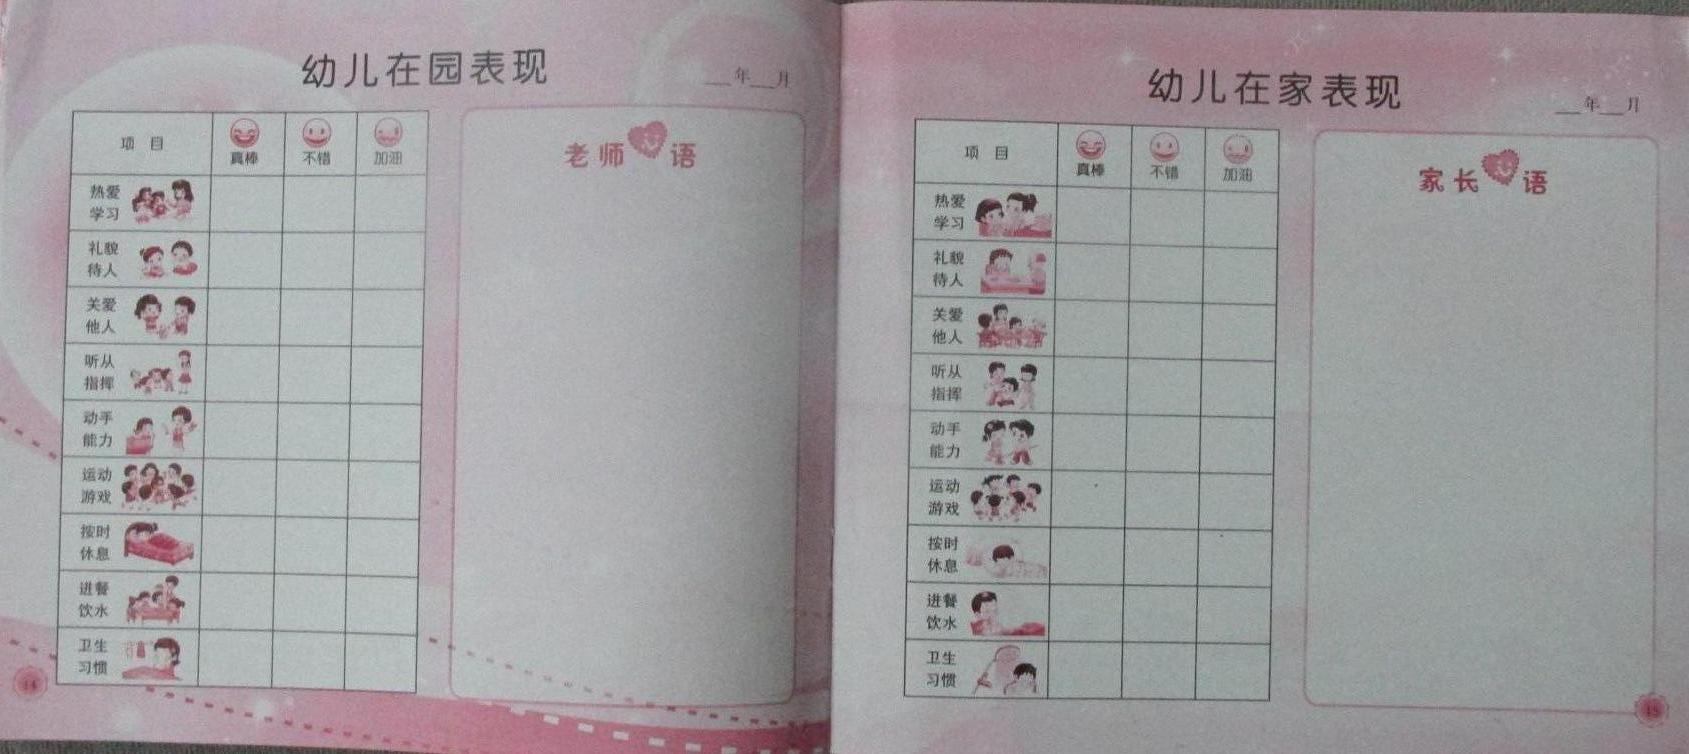 幼儿在园表现
__年__月
项 目 真棒 不错 加油
热爱
学习
礼貌
待人
关爱
他人
听从
指挥
动手
能力
运动
游戏
按时
休息
进餐
饮水
卫生
习惯
老师 语
14
幼儿在家表现
__年__月
项 目 真棒 不错 加油
热爱
学习
礼貌
待人
关爱
他人
听从
指挥
动手
能力
运动
游戏
按时
休息
进餐
饮水
卫生
习惯
家长 语
15